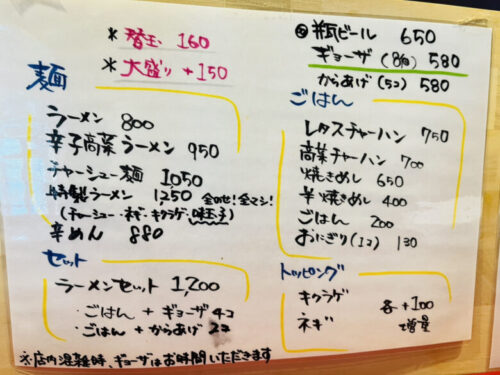 *替玉 160
*大盛り +150
麺
ラーメン 800
辛子高菜ラーメン 950
チャーシュー麺 1050
特製ラーメン 1250 全のせ!全マシ!
(チャーシュー・ネギ・キクラゲ・味玉子)
辛めん 880
セット
ラーメンセット 1,200
・ごはん + ギョーザ 4コ
・ごはん + からあげ 2コ
※店内混雑時、ギョーザはお時間いただきます
瓶ビール 650
ギョーザ (8個) 580
からあげ (5コ) 580
ごはん
レタスチャーハン 750
高菜チャーハン 700
焼きめし 650
半焼きめし 400
ごはん 200
おにぎり(1コ) 130
トッピング
キクラゲ 各+100
ネギ 増量